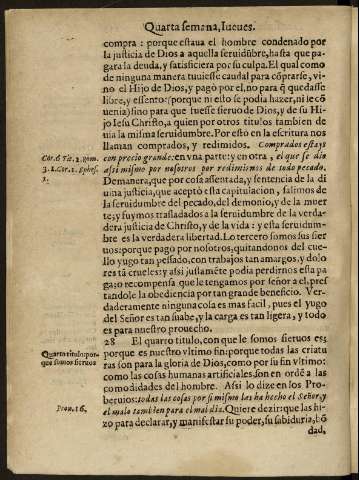 Quarta semana, Iueues.
compra: porque estaua el hombre condenado por
la justicia de Dios a aquella seruidũbre, hasta que pa-
gara la deuda, y satisficiera por su culpa. El qual como
de ninguna manera tuuiesse caudal para cõprarse, vi-
no el Hijo de Dios, y pagò por el, no para q̃ quedasse
libre, y essento: (porque ni esto se podia hazer, ni le cõ
uenia) sino para que fuesse sieruo de Dios, y de su Hi-
jo Iesu Christo, a quien por otros titulos tambien de
uia la misma seruidumbre. Por esto en la escritura nos
llaman comprados, y redimidos. Comprados estays
con precio grande: en vna parte: y en otra, el que se dio
assi mismo por nosotros por redimirnos de todo pecado.
Demanera, que por cosa assentada, y sentencia de la di
uina justicia, que aceptò esta capitulacion, salimos de
la seruidumbre del pecado, del demonio, y de la muer
te; y fuymos trasladados a la seruidumbre de la verda-
dera justicia de Christo, y de la vida: y esta seruidum-
bre es la verdadera libertad. Lo tercero somos sus sier
uos: porque pagò por nosotros, quitandonos del cue-
llo yugo tan pesado, con trabajos tan amargos, y dolo
res tã crueles: y assi justamẽte podia perdirnos esta pa
ga: o recompensa que le tengamos por señor a el, pres
tandole la obediencia por tan grande beneficio. Ver-
daderamente ninguna cosa es mas facil, pues el yugo
del Señor es tan suabe, y la carga es tan ligera, y todo
es para nuestro prouecho.
28 El quarto titulo, con que le somos sieruos es:
porque es nuestro vltimo fin: porque todas las criatu
ras son para la gloria de Dios, como por su fin vltimo:
como las cosas humanas artificiales son en ordẽ a las
comodidades del hombre. Assi lo dize en los Pro-
berbios: todas las cosas por si mismo las ha hecho el Señor, y
el malo tambien para el mal dia. Quiere dezir: que las hi-
zo para declarar, y manifestar su poder, su sabiduria, bõ
dad,
Cor. 6 Tit. 2. Rom.
3. 1. Cor. 1. Ephes.
1.
Quarto titulo: por
que somos sieruos
Prou. 16.